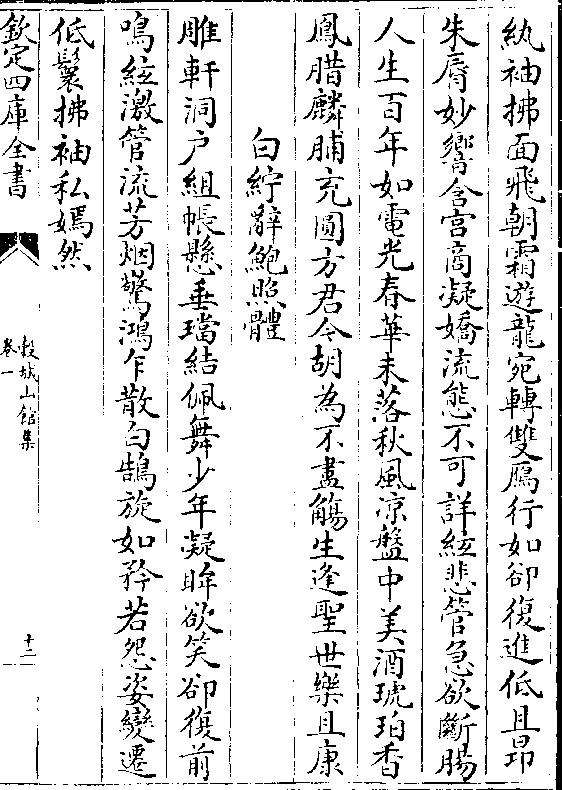 紈袖拂面飛朝霜遊龍宛轉雙鴈行如卻復進低且昻
朱脣妙響含宫商凝嬌流態不可詳絃悲管急欲斷腸
人生百年如電光春華未落秋風凉盤中美酒琥珀香
鳳腊麟脯充圓方君今胡為不盡觴生逢聖世樂且康
白紵辭鮑照體
雕軒洞户組帳懸垂璫結佩舞少年凝眸欲笑卻復前
鳴絃激管流芳烟驚鴻乍散白鵠旋如矜若怨姿變遷
低鬟拂袖私嫣然
欽定四庫全書
穀城山館集
卷一
十二